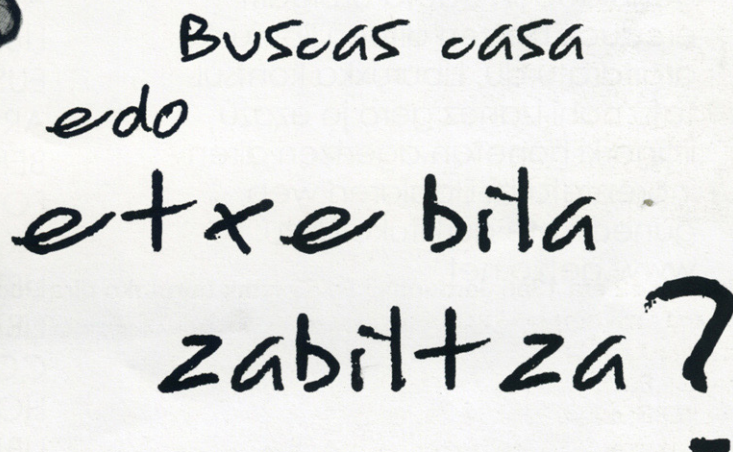 Buscas casa
edo
etxe bila
zabiltza?